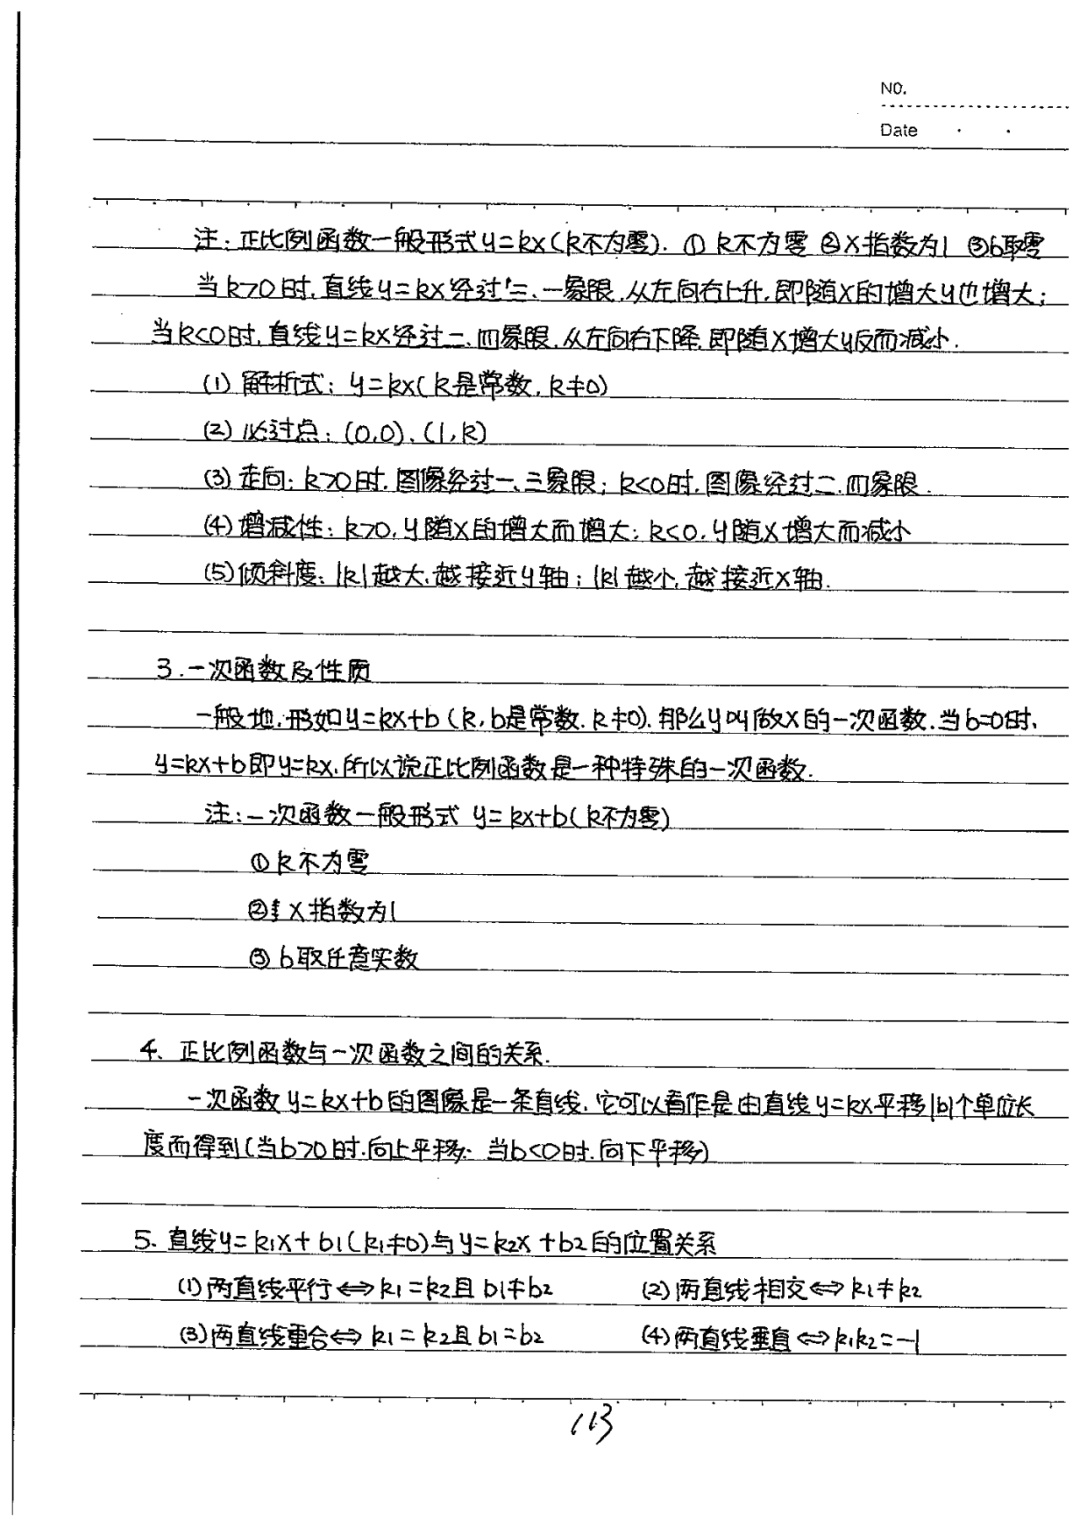 NO.
Date
注:正比例函数一般形式y=kx(k不为零). ① k不为零 ②x指数为1 ③b取零
当k>0时,直线y=kx经过三、一象限,从左向右上升,即随x的增大y也增大;
当k<0时,直线y=kx经过二、四象限,从左向右下降,即随x增大y反而减小.
(1) 解析式: y=kx(k是常数,k≠0)
(2) 必过点: (0,0)、(1,k)
(3) 走向: k>0时,图像经过一、三象限; k<0时,图像经过二、四象限.
(4) 增减性: k>0,y随x的增大而增大; k<0,y随x增大而减小
(5) 倾斜度: |k|越大,越接近y轴; |k|越小,越接近x轴.
3.一次函数及性质
一般地,形如y=kx+b(k,b是常数,k≠0),那么y叫做x的一次函数.当b=0时,
y=kx+b即y=kx,所以说正比例函数是一种特殊的一次函数.
注:一次函数一般形式 y=kx+b(k不为零)
① k不为零
② x指数为1
③ b取任意实数
4、正比例函数与一次函数之间的关系.
一次函数y=kx+b的图像是一条直线,它可以看作是由直线y=kx平移|b|个单位长
度而得到(当b>0时,向上平移; 当b<0时,向下平移)
5、直线y=k1x+b1(k1≠0)与y=k2x+b2的位置关系
(1)两直线平行⟺k1=k2且b1≠b2 (2)两直线相交⟺k1≠k2
(3)两直线重合⟺k1=k2且b1=b2 (4)两直线垂直⟺k1k2=-1
113